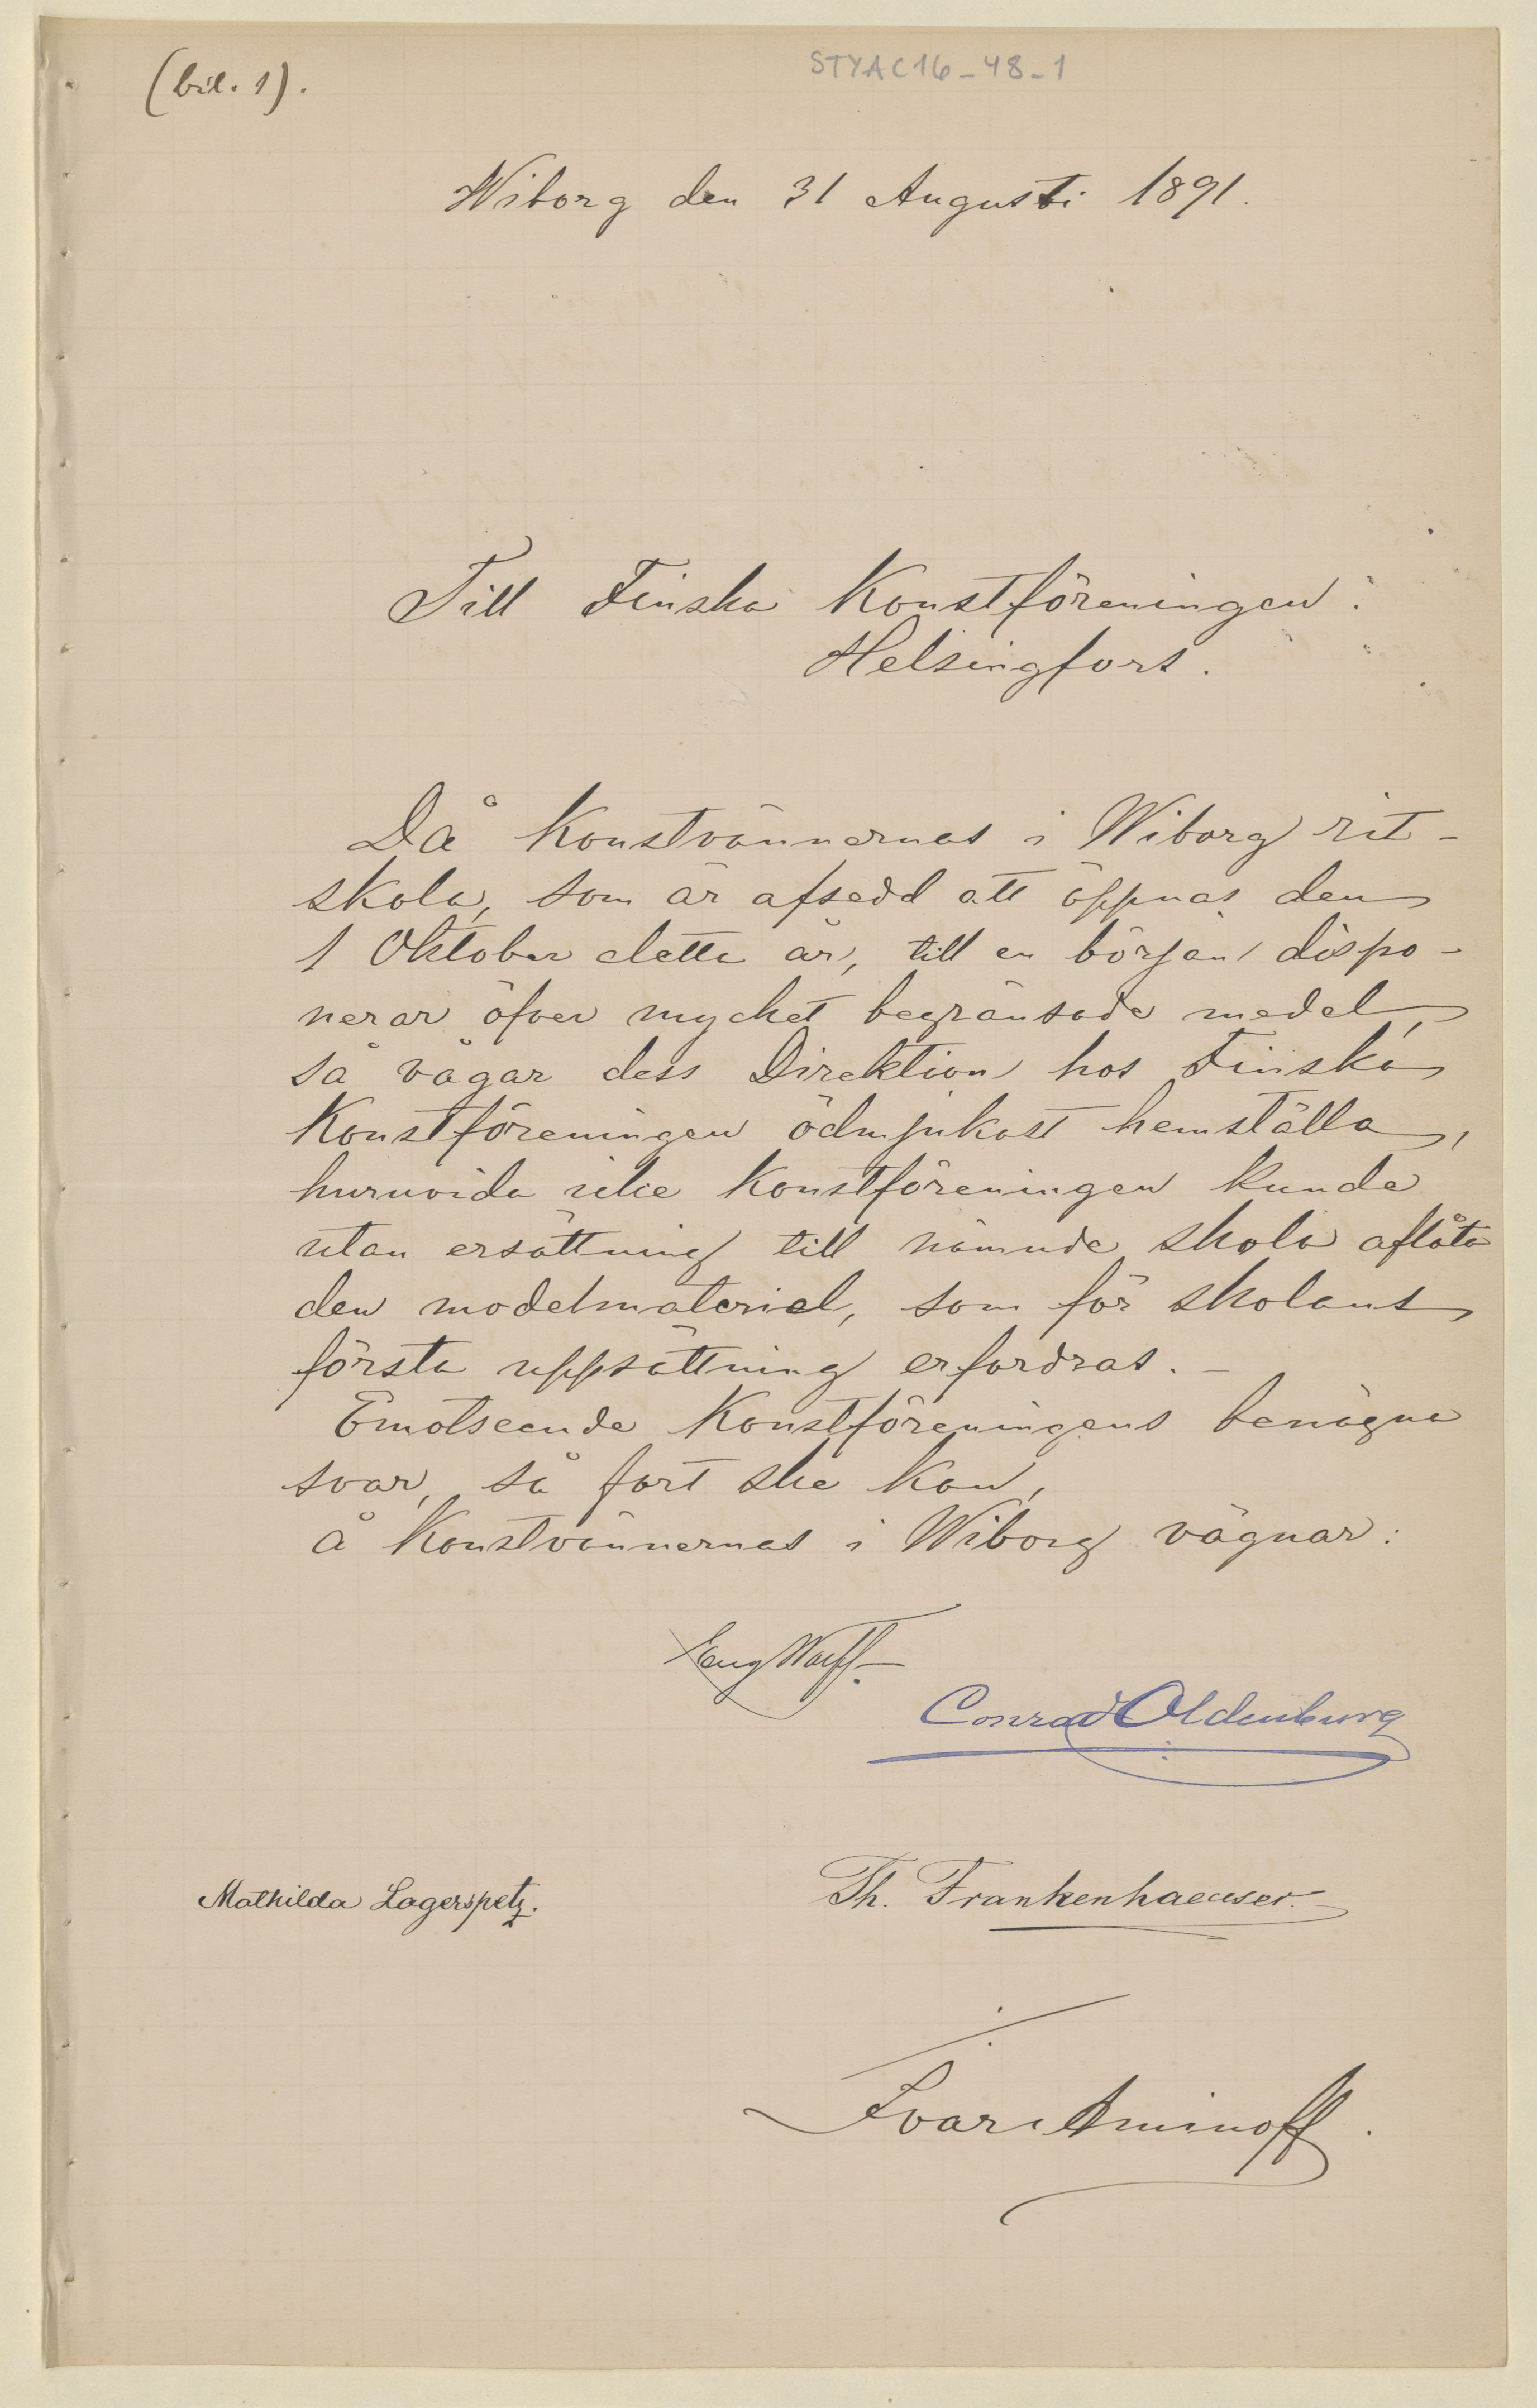 (bil. 1).
STYAC16-48-1
Wiborg den 31 Augusti 1891.
Till Finska Konstföreningen:
Helsingfors.
Då Konstvännernas i Wiborg rit-
skola, som är afsedd att öppnas den
1 Oktober detta år, till en början dispo-
nerar öfver mycket begränsade medel,
så vågar dess Direktion hos Finska
Konstföreningen ödmjukast hemställa,
huruvida icke Konstföreningen kunde
utan ersättning till nämnde skola aflåta
den modelmateriel, som för skolans
första uppsättning erfordras. –
Emotseende Konstföreningens benägna
svar, så fort ske kan,
å Konstvännernas i Wiborg vägnar:
Eug Wolff.
Conrad Oldenburg
Mathilda Lagerspetz.
Th. Frankenhaeuser.
Ivar Aminoff.